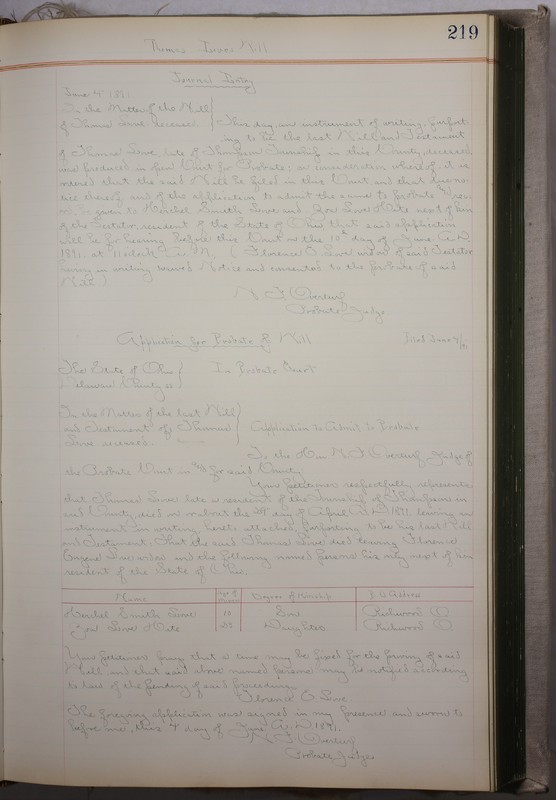 219
Thomas Lowe's Will
Journal Entry
June 4" 1891
In the Matter of the Will
of Thomas Lowe deceased
This day an instrument of writing, purport-
ing to be the last Will and Testament
of Thomas Lowe, late of Thompson Township in this County, deceased
was produced in open Court for Probate: in consideration whereof, it is
ordered that the said Will be filed in this Court and that due no-
tice thereof, and of the application to admit the same to probate
be given to Herschel Smith Lowe and Zoa Lowe next of kin
of the Testator resident of the State of Ohio, that said application
will be for hearing before this Court on the 10" day of June A.D.
1891, at 11 o'clock A.M. (Florence E. Lowe widow of said Testator
having in writing waived Notice and consented to the probate of said
Will.)
Probate Judge
Application for Probate of Will
Filed June 4/91
The State of Ohio
Delaware County ss
In Probate Court
In the Matter of the last Will
and Testament of Thomas
Lowe deceased.
Application to Admit to Probate
To the Hon. Judge of
the Probate Court in and for said County
Your petitioner respectfully represents
that Thomas Lowe late a resident of the Township of Thompson in
said County, died on or about the 29" day of April A.D. 1891 leaving an
instrument in writing, hereto attached, purporting to be his last Will
and Testament. That the said Thomas Lowe died leaving Florence
Lowe widow and the following named persons his only next of kin
resident of the State of Ohio.
Name
Degree of Kinship
P.O. Address
Herschel Smith Lowe
Son
Richwood O
Zoa Lowe
Daughter
Richwood O
Your petitioner prays that a time may be fixed for the proving of said
Will and that said above named persons may be notified according
to law of the pending of said proceeding.
Florence E Lowe
The foregoing application was signed in my presence and sworn to
before me, this 4" day of June A.D. 1891.
Probate Judge